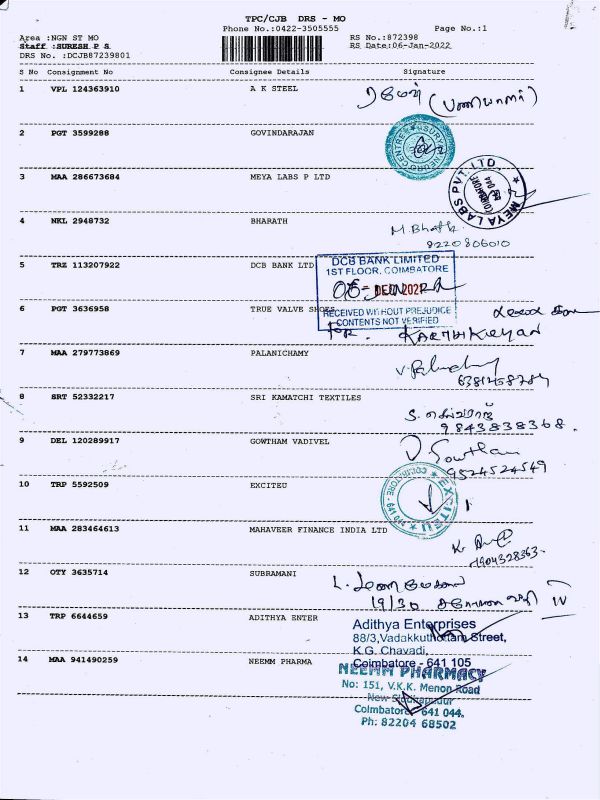 TPC/CJB DRS - MO
Phone No.:0422-3505555
Page No.:1
Area :NGN ST MO
RS No.:872398
Staff :SURESH P S
RS Date:06-Jan-2022
DRS No. :DCJB87239801
S No Consignment No Consignee Details Signature
1 VPL 124363910 A K STEEL
ரமேஷ்
2 PGT 3599288 GOVINDARAJAN
3 MAA 286673684 MEYA LABS P LTD
MEYA LABS PVT. LTD.
COIMBATORE
4 NKL 2948732 BHARATH
M. Bharth
8220806010
5 TRZ 113207922 DCB BANK LTD
DCB BANK LIMITED
1ST FLOOR, COIMBATORE
RECEIVED WITHOUT PREJUDICE
CONTENTS NOT VERIFIED
6 PGT 3636958 TRUE VALVE SHOES
For. KARTHIKEYAN
7 MAA 279773869 PALANICHAMY
8 SRT 52332217 SRI KAMATCHI TEXTILES
S. செல்வராஜ்
9843838368.
9 DEL 120289917 GOWTHAM VADIVEL
Gowtham
9524524549
10 TRP 5592509 EXCITEU
EXCITEU
11 MAA 283464613 MAHAVEER FINANCE INDIA LTD
12 OTY 3635714 SUBRAMANI
19/30
13 TRP 6644659 ADITHYA ENTER
Adithya Enterprises
88/3,Vadakkuthottam Street,
K.G. Chavadi,
Coimbatore - 641 105
14 MAA 941490259 NEEMM PHARMA
NEEMM PHARMACY
No: 151, V.K.K. Menon Road
New Siddhapudur
Coimbatore 641 044.
Ph: 82204 68502